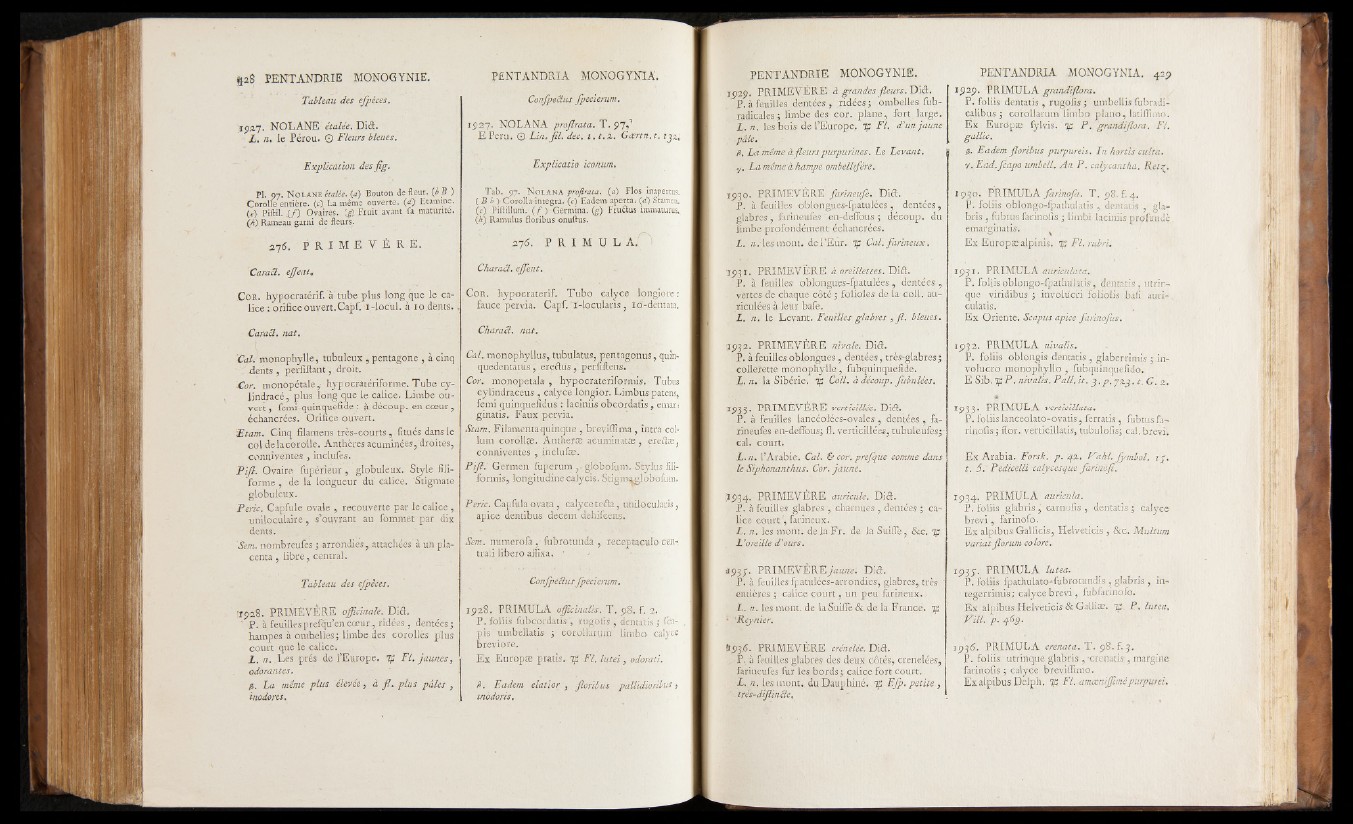 428 PENTANDRIE MONOGYNIE.
Tableau des eſpèces.
1927. NOLANE étalée. Dict.
L. n. le Pérou. ☉ Fleurs bleues.
Explication des fig.
Pl. 97. NOLANE étalée. (a) Bouton de fleur. (b B)
Corolle entière. (c) La même ouverte. (d) Etamine.
(e) Piſtil. (f) Ovaires. (g) Fruit avant ſa maturité.
(h) Rameau garni de fleurs.
276. PRIMEVÈRE.
Caract. eſſent.
COR. hypocratérif. à tube plus long que le ca-
lice ; orifice ouvert. Capſ. 1-locul. à 10 dents.
Caract. nat.
Cal. monophylle, tubuleux, pentagone, à cinq
dents, perſiſtant, droit.
Cor. monopétale, hypocratériforme. Tube cy-
lindracé, plus long que le calice. Limbe ou-
vert, ſemi quinquefide : à découp. en cœur,
échancrées. Orifice ouvert.
Etam. Cinq filamens très-courts, ſitués dans le
col de la corolle. Anthères acuminées, droites,
conniventes, incluſes.
Piſt. Ovaire ſupérieur, globuleux. Style fili-
forme, de la longueur du calice. Stigmate
globuleux.
Peric. Capſule ovale, recouverte par le calice,
uniloculaire, s'ouvrant au ſommet par dix
dents.
Sem. nombreuſes ; arrondies, attachées à un pla-
centa, libre, central.
Tableau des eſpèces.
1928. PRIMEVÈRE officinale. Dict.
P. à feuilles preſqu'en cœur, ridées, dentées ;
hampes à ombelles ; limbe des corolles plus
court que le calice.
L. n. Les prés de l'Europe. ♃ Fl. jaunes,
odorantes.
β. La même plus élevée, à fl. plus pâles,
inodores.
PENTANDRIA MONOGYNIA.
Conſpectus ſpecierum.
1927. NOLANA proſtrata. T. 97.
E Peru. ☉ Lin. fil. dec. 1. t. 2. Gærtn. t. 132.
Explicatio iconum.
Tab. 97. NOLANA proſtrata. (a) Flos inapertus.
(B b) Corolla integra. (c) Eadem aperta. (d) Stamen.
(e) Piſtillum. (f) Germina. (g) Fructus immaturus.
(h) Ramulus floribus onuſtus.
276. PRIMULA.
Charact. eſſent.
COR. hypocraterif. Tubo calyce longiore :
fauce pervia. Capſ. 1-locularis, 10-dentata.
Charact. nat.
Cal. monophyllus, tubulatus, pentagonus, quin-
quedentatus, erectus, perſiſtens.
Cor. monopetala, hypocrateriformis. Tubus
cylindraceus, calyce longior. Limbus patens,
ſemi quinquefidus : laciniis obcordatis, emar-
ginatis. Faux pervia.
Stam. Filamenta quinque, breviſſima, intra col-
lum corollæ. Antheræ acuminatæ, erectæ,
conniventes, incluſæ.
Piſt. Germen ſuperum, globoſum. Stylus fili-
formis, longitudine calycis. Stigma globoſum.
Peric. Capſula ovata, calyce tecta, unilocularis,
apice dentibus decem dehiſcens.
Sem. numeroſa, ſubrotunda, receptaculo cen-
trali libero affixa.
Conſpectus ſpecierum.
1928. PRIMULA officinalis. T. 98. f. 2.
P. foliis ſubcordatis, rugoſis, dentatis ; ſca-
pis umbellatis ; corollarum limbo calyce
breviore.
Ex Europæ pratis. ♃ Fl. lutei, odorati.
β. Eadem elatior, floribus pallidioribus,
inodores.
PENTANDRIE MONOGYNIE.
1929. PRIMEVÈRE à grandes fleurs. Dict.
P. à feuilles dentées, ridées ; ombelles ſub-
radicales ; limbe des cor. plane, fort large.
L. n. les bois de l'Europe. ♃ Fl. d'un jaune
pâle.
β. La même à fleurs purpurines. Le Levant.
γ. La même à hampe ombellifère.
1930. PRIMEVÈRE farineuſe. Dict.
P. à feuilles oblongues-ſpatulées, dentées,
glabres, farineuſes en-deſſous ; découp. du
limbe profondément échancrées.
L. n. les mont. de l'Eur. ♃ Cal. farineux.
1931. PRIMEVÈRE à oreillettes. Dict.
P. à feuilles oblongues-ſpatulées, dentées,
vertes de chaque côté ; folioles de la coll. au-
riculées à leur baſe.
L. n. le Levant. Feuilles glabres, fl. bleues.
1932. PRIMEVÈRE nivale. Dict.
P. à feuilles oblongues, dentées, très-glabres ;
collerette monophylle, ſubquinquefide.
L. n. la Sibérie. ♃ Coll. à découp. ſubulées.
1933. PRIMEVÈRE verticillée. Dict.
P. à feuilles lancéolées-ovales, dentées, fa-
rineuſes en-deſſous ; fl. verticillées, tubuleuſes ;
cal. court.
L. n. l'Arabie. Cal. & cor. preſque comme dans
le Siphonanthus. Cor. jaune.
1934. PRIMEVÈRE auricule. Dict.
P. à feuilles glabres, charnues, dentées ; ca-
lice court, farineux.
L. n. les mont. de la Fr. de la Suiſſe, &c. ♃
L'oreille d'ours.
1935. PRIMEVÈRE jaune. Dict.
P. à feuilles ſpatulées-arrondies, glabres, très
entières ; calice court, un peu farineux.
L. n. les mont. de la Suiſſe & de la France. ♃
Reynier.
1936. PRIMEVÈRE crénelée. Dict.
P. à feuilles glabres des deux côtés, crenelées,
farineuſes ſur les bords ; calice fort court.
L. n. les mont. du Dauphiné. ♃ Eſp. petite,
très-diſtincte.
PENTANDRIA MONOGYNIA. 429
1929. PRIMULA grandiflora.
P. foliis dentatis, rugoſis ; umbellis ſubradi-
calibus ; corollarum limbo plano, latiſſimo.
Ex Europæ ſylvis. ♃ P. grandiflora. Fl.
gallic.
β. Eadem floribus purpureis. In hortis culta.
γ. Ead. ſcapo umbell. An P. calycantha. Retz.
1930. PRIMULA farinoſa. T. 98. f. 4.
P. foliis oblongo-ſpathulatis, dentatis, gla-
bris, ſubtus farinoſis ; limbi laciniis profundè
emarginatis.
Ex Europæ alpinis. ♃ Fl. rubri.
1931. PRIMULA auriculata.
P. foliis oblongo-ſpathulatis, dentatis, utrin-
que viridibus ; involucri foliolis baſi auri-
culatis.
Ex Oriente. Scapus apice farinoſus.
1932. PRIMULA nivalis.
P. foliis oblongis dentatis, glaberrimis ; in-
volucro monophyllo, ſubquinquefido.
E Sib. ♃ P. nivalis. Pall. it. 3. p. 723. t. G. 2.
1933. PRIMULA verticillata.
P. foliis lanceolato-ovatis, ſerratis, ſubtus fa-
rinoſis ; flor. verticillatis, tubuloſis ; cal. brevi.
Ex Arabia. Forsk. p. 42. Vahl. ſymbol. 15.
t. 5. Pedicelli calycesque farinoſi.
1934. PRIMULA auricula.
P. foliis glabris, carnoſis, dentatis ; calyce
brevi, farinoſo.
Ex alpibus Gallicis, Helveticis, &c. Multum
variat florum colore.
1935. PRIMULA lutea.
P. foliis ſpathulato-ſubrotundis, glabris, in-
tegerrimis ; calyce brevi, ſubfarinoſo.
Ex alpibus Helveticis & Galliæ. ♃ P. lutea.
Vill. p. 469.
1936. PRIMULA crenata. T. 98. f. 3.
P. foliis utrinque glabris, crenatis, margine
farinoſis ; calyce breviſſimo.
Ex alpibus Delph. ♃ Fl. amœniſſimè purpurei.